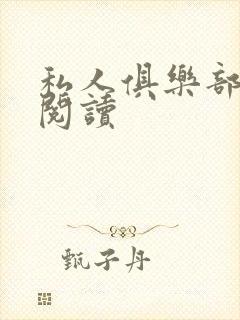 私人俱樂部
閱讀
甄子丹